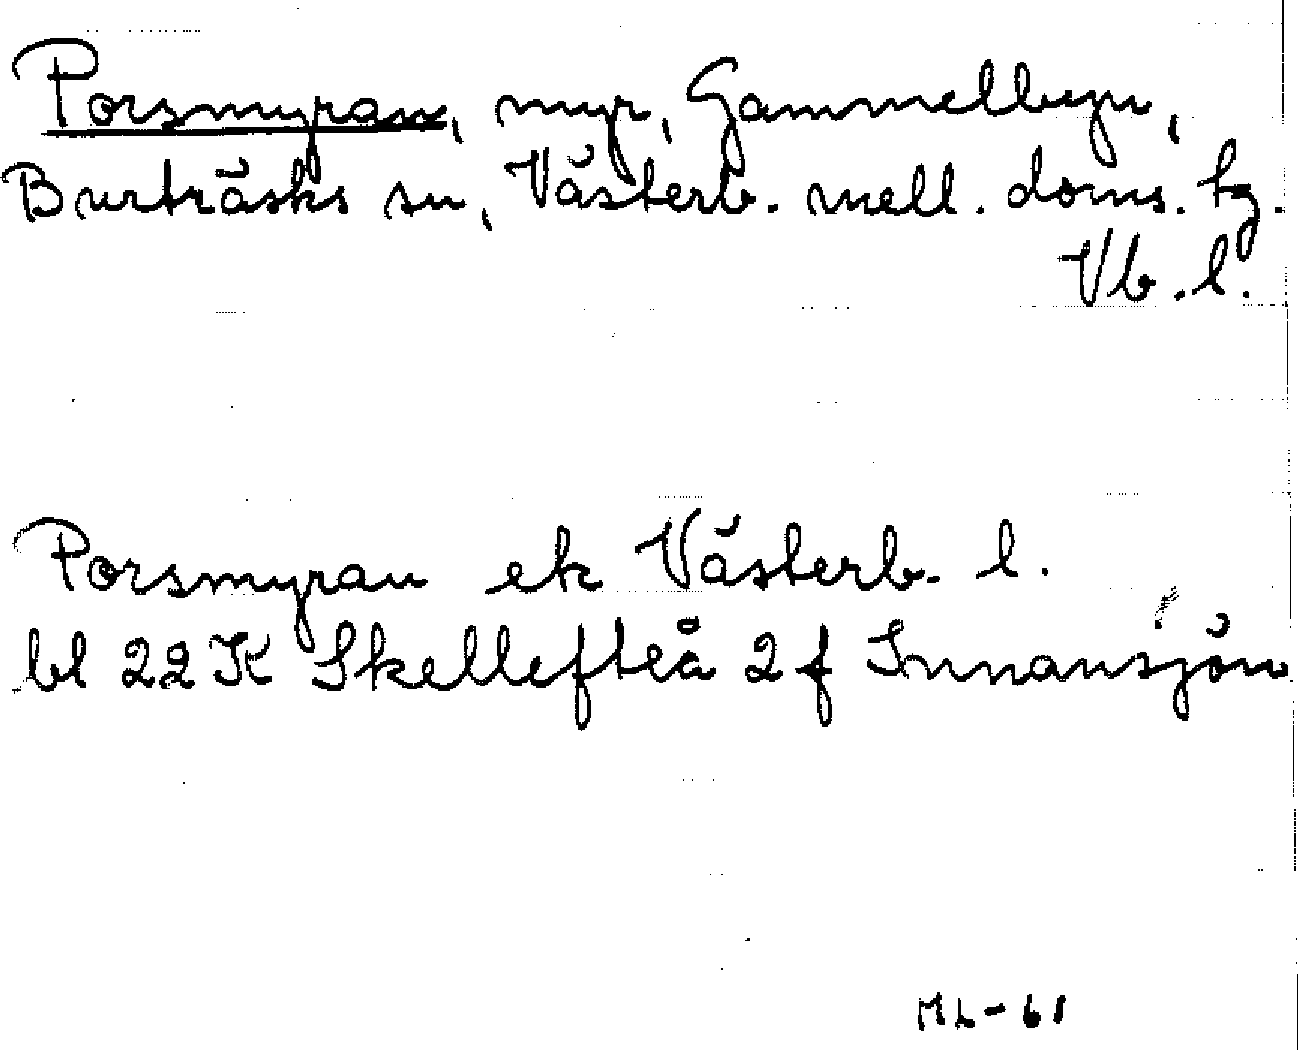 Porsmyran, myr, Gammelbyn,
Burträsks sn, Västerb. mell. doms. tg.
Vb. l.
Porsmyran ek Västerb. l.
bl 22 K Skellefteå 2 f Innansjön
ML-61